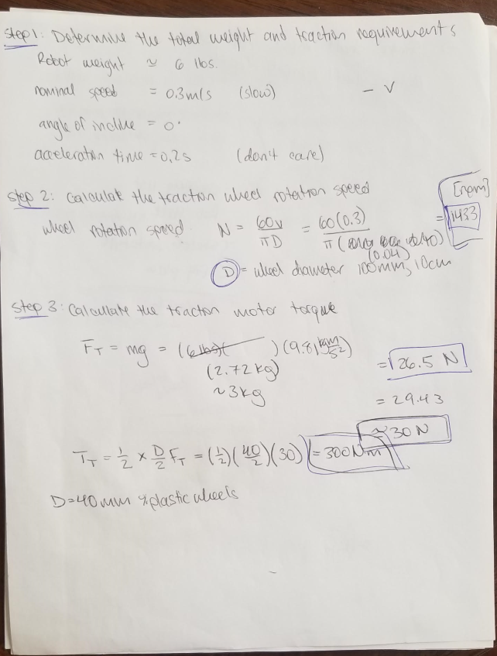 Step 1: Determine the total weight and traction requirements
Robot weight ≃ 6 lbs.
nominal speed = 0.3 m/s (slow) - V
angle of incline = 0°
acceleration time = 0.2s (don't care)
step 2: Calculate the traction wheel rotation speed
[rpm]
wheel rotation speed N = 60v / πD = 60(0.3) / π( (0.04) = 1433
D = wheel diameter 100mm, 10cm
step 3: Calculate the traction motor torque
F_T = mg = (6 lbs)( )(9.81 = 26.5 N
(2.72 kg)
~3kg = 29.43
≃ 30 N
T_T = 1/2 × D/2 F_T = (1/2)(40/2)(30) = 300 Nm
D=40mm plastic wheels